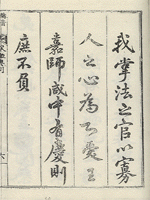 我掌法之官以寡
人之心為心受王
嘉師咸中有慶則
庶不負